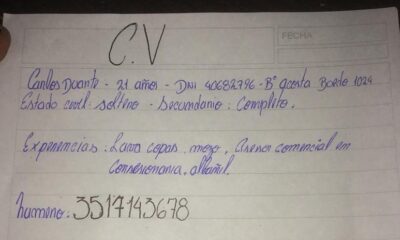 FECHA
C.V
Carlos Duarte - 21 años - DNI 40682796 - B° acosta Bordo 1024
Estado civil: soltero - Secundario: Completo.
Experiencias: Lava copas, mozo, Asesor comercial en
Consesionaria, albañil.
numero: 3517143678